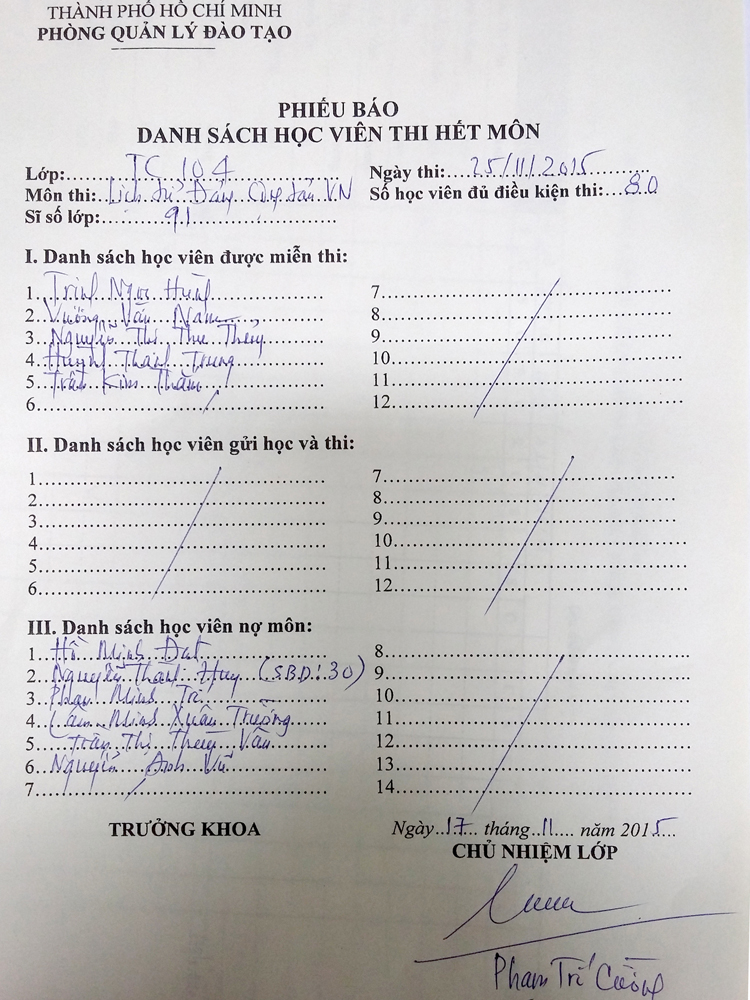 THÀNH PHỐ HỒ CHÍ MINH
PHÒNG QUẢN LÝ ĐÀO TẠO
PHIẾU BÁO
DANH SÁCH HỌC VIÊN THI HẾT MÔN
Lớp: TC 104
Ngày thi: 25/11/2015
Môn thi: Lịch sử Đảng Cộng sản VN
Số học viên đủ điều kiện thi: 80
Sĩ số lớp: 91
I. Danh sách học viên được miễn thi:
1. Trịnh Ngọc Hùng
2. Vương Văn Nam
3. Nguyễn Thị Thu Thủy
4. Huỳnh Thành Trung
5. Trần Kim Thắm
6.
7.
8.
9.
10.
11.
12.
II. Danh sách học viên gửi học và thi:
1.
2.
3.
4.
5.
6.
7.
8.
9.
10.
11.
12.
III. Danh sách học viên nợ môn:
1. Hồ Minh Đạt
2. Nguyễn Thành Huy (SBD: 30)
3. Phan Minh Trí
4. Lâm Minh Xuân Trường
5. Trần Thị Thúy Vân
6. Nguyễn Anh Vũ
7.
8.
9.
10.
11.
12.
13.
14.
TRƯỞNG KHOA
Ngày 17 tháng 11 năm 2015
CHỦ NHIỆM LỚP
Phạm Trí Cường